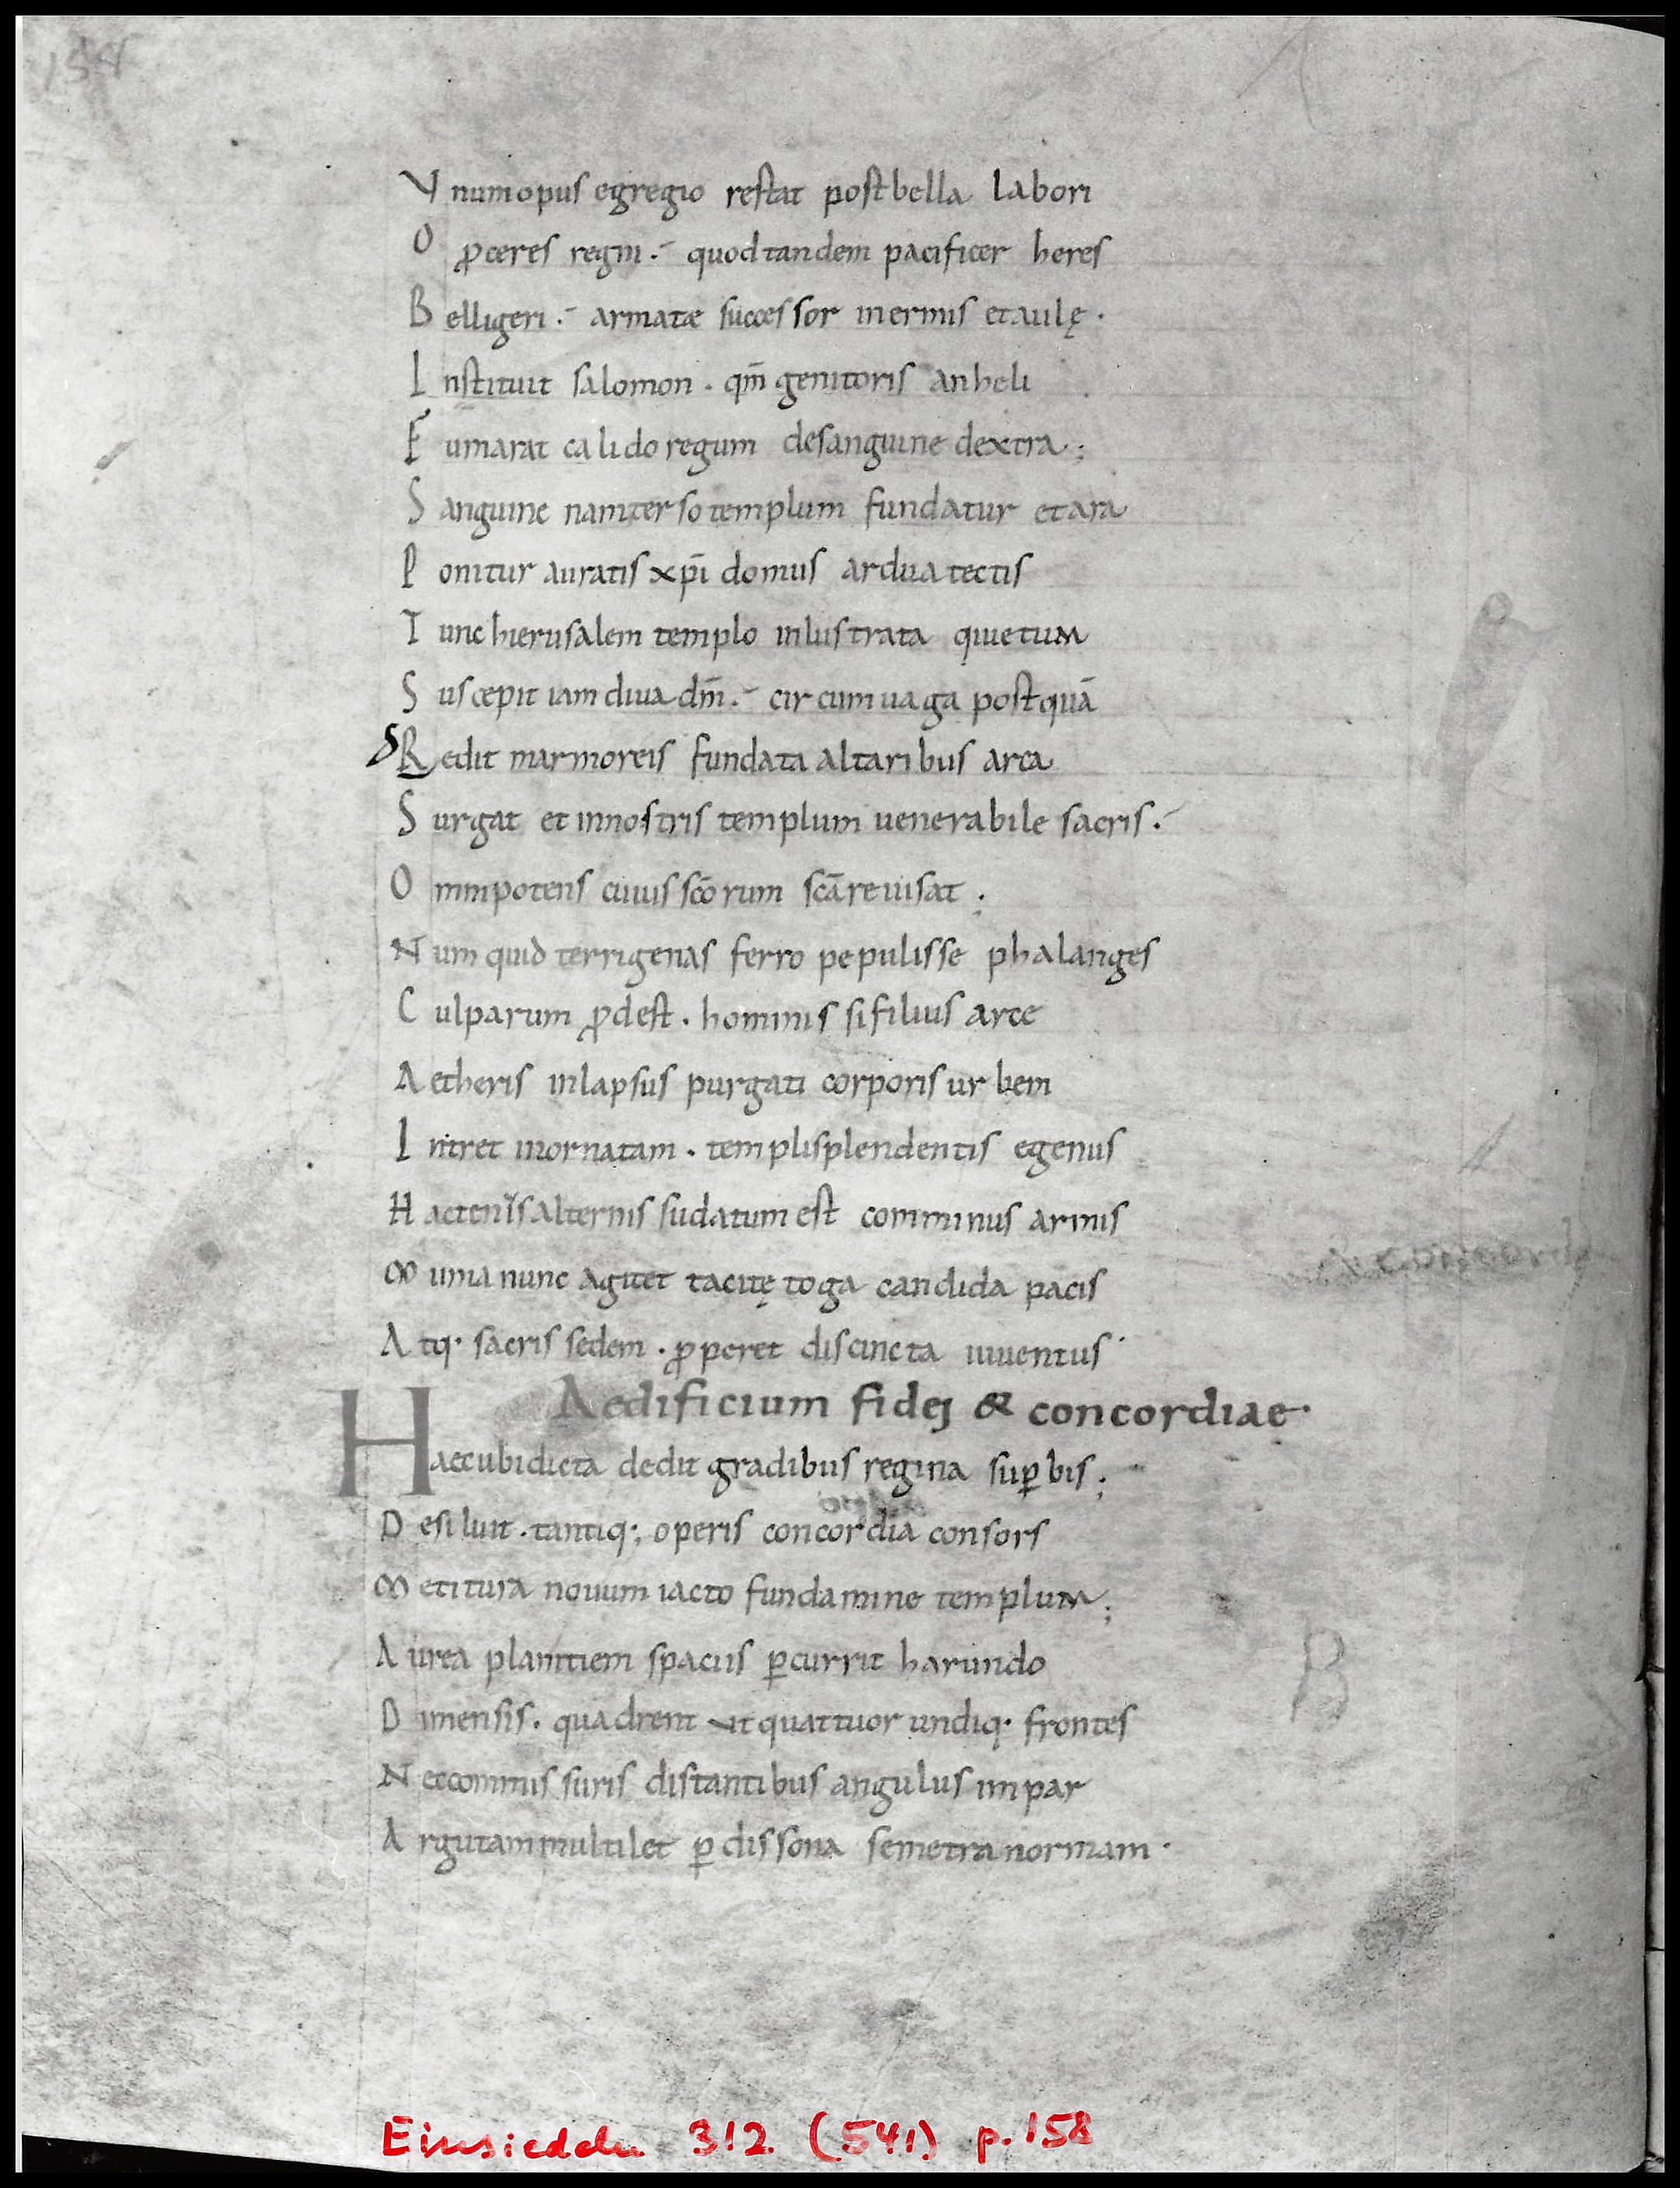 158
Vnum opus egregio restat post bella labori
O p̄ceres regni. quod tandem pacificer heres
Belligeri. armatae successor inermis et aulę.
Instituit salomon. qm̄ genitoris anheli
Fumarat calido regum de sanguine dextra;
Sanguine nam terso templum fundatur et ara
Ponitur auratis xp̄i domus ardua tectis
Tunc hierusalem templo inlustrata quietum
Suscepit iam diua dm̄. circumuaga postquā
Sedit marmoreis fundata altaribus arca
Surgat et in nostris templum uenerabile sacris.
Omnipotens cuius scōrum scā reuisat;
Num quid terrigenas ferro pepulisse phalanges
Culparum p̄dest. hominis si filius arce
Aetheris inlapsus purgati corporis urbem
Intret inornatam. templi splendentis egenus
Hactenus alternis sudatum est comminus armis
Munia nunc agitet tacitę toga candida pacis
Atq· sacris sedem. p̄peret discincta iuuentus
Aedificium fidej & concordiae·
Haec ubi dicta dedit gradibus regina sup̱bis;
Desiluit. tantiq·; operis concordia consors
Metitura nouum iacto fundamine templum;
Aurea planitiem spaciis p̱currit harundo
Dimensis. quadrent ut quattuor undiq· frontes
Nec commissuris distantibus angulus impar
Argutam multilet p̱ dissona semetra normam·
B
Einsiedeln 312 (541) p. 158